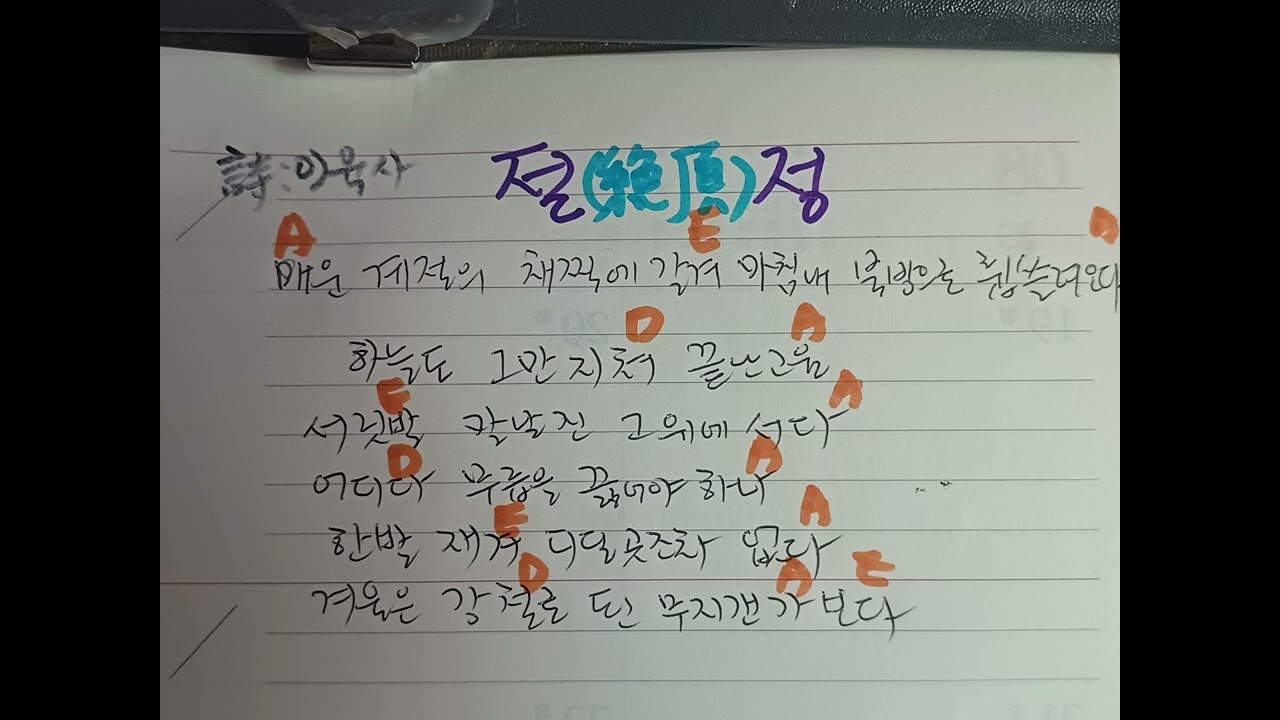 詩:이육사 절(絶頂)정
A E A
매운 계절의 채찍에 갈겨 마침내 북방으로 휩쓸려오다
D A
하늘도 그만 지쳐 끝난 고원
E A
서릿발 칼날진 그위에 서다
D A
어디다 무릎을 꿇어야 하나
E A
한발 재겨 디딜곳조차 없다
D A E
겨울은 강철로 된 무지갠가보다